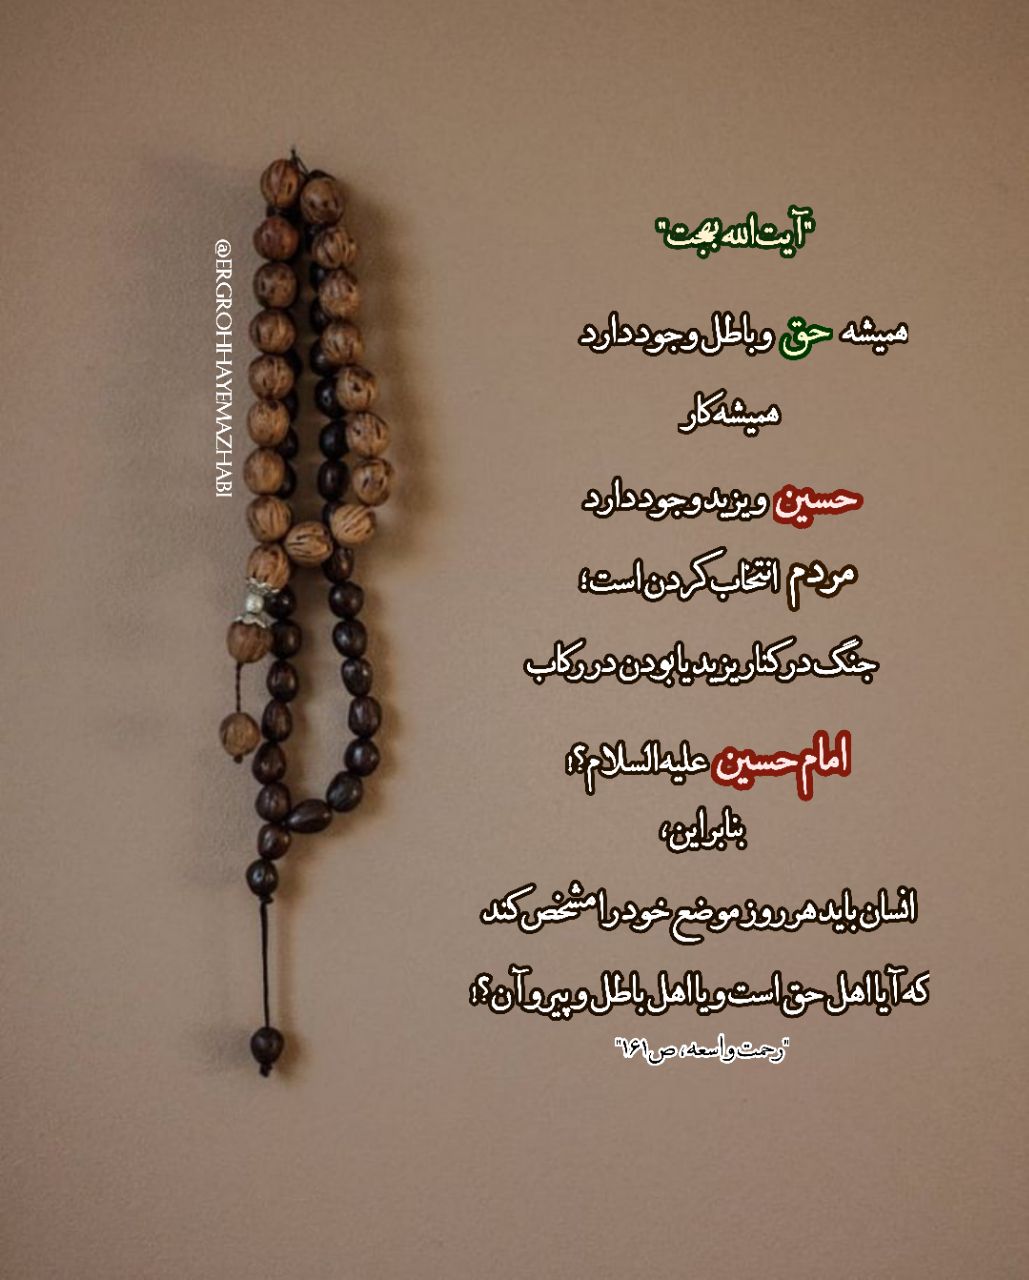 "آیت الله بهجت"
همیشه حق و باطل وجود دارد
همیشه کار
حسین و یزید وجود دارد
مردم انتخاب کردن است؛
جنگ در کنار یزید یا بودن در رکاب
امام حسین علیه السلام؟!
بنابراین،
انسان باید هر روز موضع خود را مشخص کند
که آیا اهل حق است و یا اهل باطل و پیرو آن؟!
"رحمت واسعه، ص۱۶۱"
@ERGROHHAYEMAZHABI